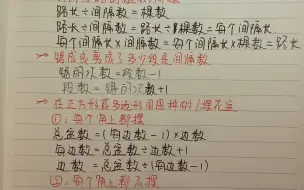 路长÷间隔数=棵数
路长÷间隔长=路长÷棵数=每个间隔长
每个间隔长×间隔数=每个间隔长×棵数=路长
锯成或剪成了多少段是间隔数
锯的次数=段数-1
段数=锯的次数+1
在正方形或多边形周围种树/摆花盆
①:每个角上都摆
总盆数=(每边数-1)×边数
每边数=总盆数÷边数+1
边数=总盆数÷(每边数-1)
②:每个角上都不摆